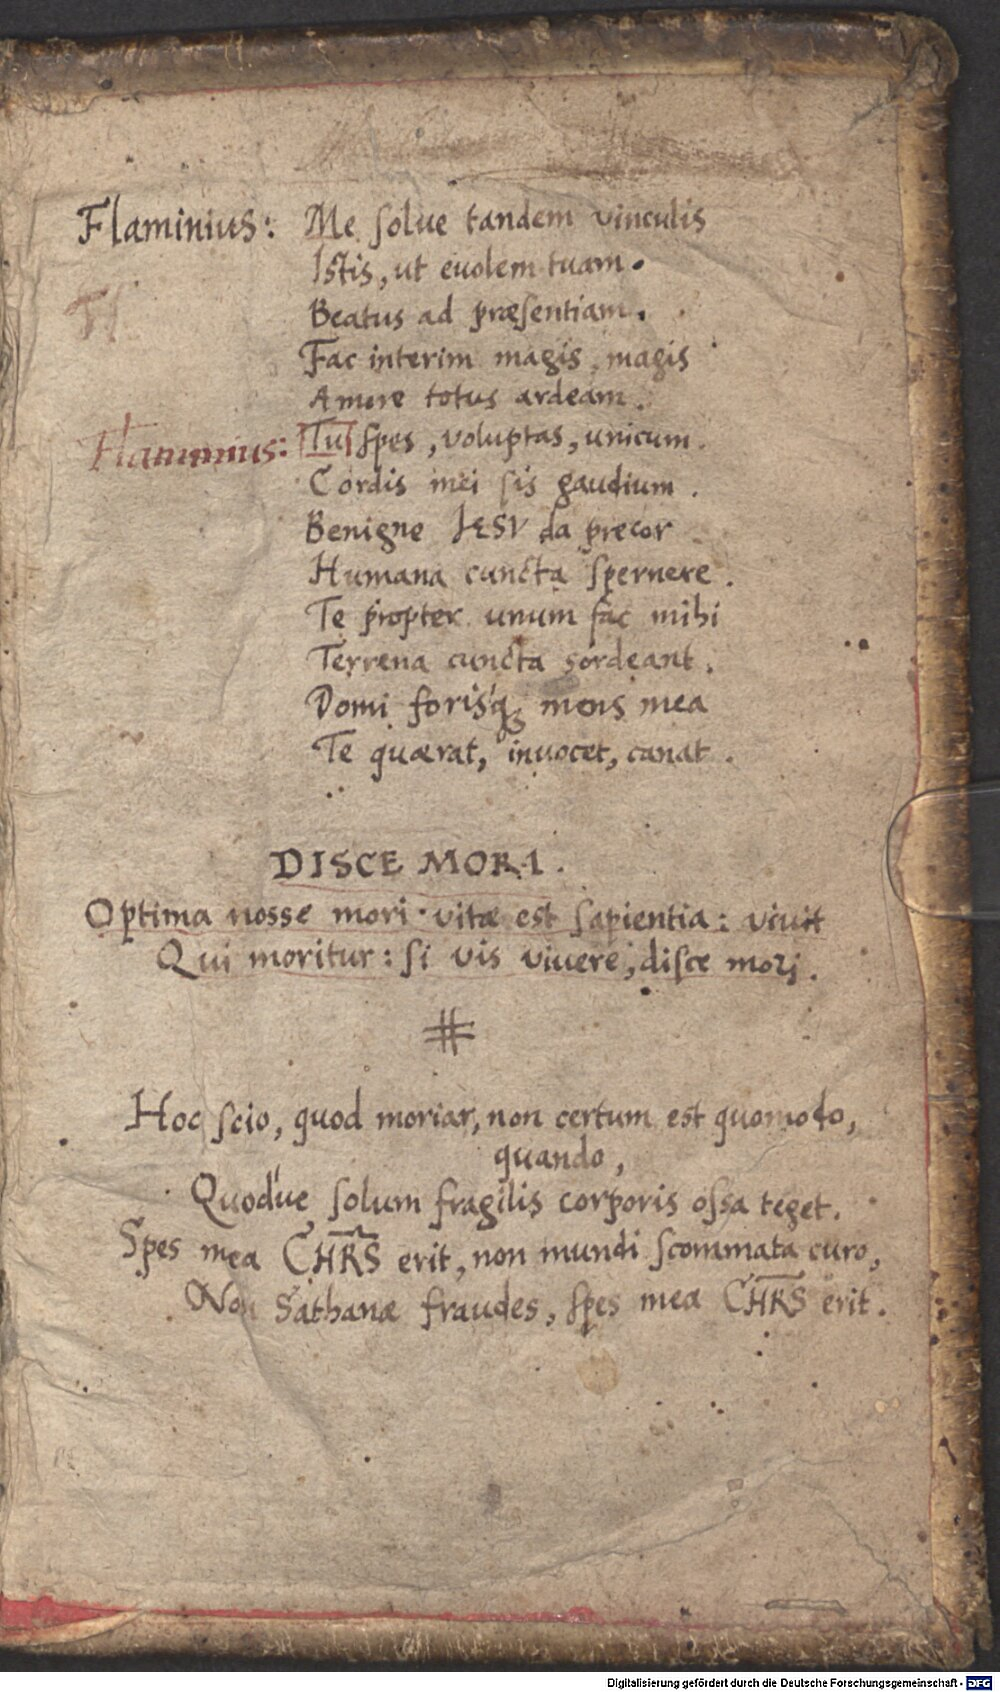 Flaminius: Me ſolue tandem vinculis
Istis, ut euolem tuam.
Beatus ad præſentiam.
Fac interim magis, magis
Amore totus ardeam.
Flaminius: Tu ſpes, voluptas, unicum.
Cordis mei ſis gaudium.
Benigne IESV da precor
Humana cuncta ſpernere.
Te propter unum fac mihi
Terrena cuncta sordeant.
Domi forisq́ꝫ mens mea
Te quærat, inuocet, canat.
DISCE MORI.
Optima nosse mori vitæ est ſapientia: viuit
Qui moritur: ſi vis viuere, diſce mori.
Hoc ſcio, quod moriar, non certum est quomodo,
quando,
Quod've ſolum fragilis corporis oſsa teget.
Spes mea CHR̅S erit, non mundi ſcommata curo,
Non Sathanæ fraudes, ſpes mea CHR̅S erit.
Digitalisierung gefördert durch die Deutsche Forschungsgemeinschaft - DFG